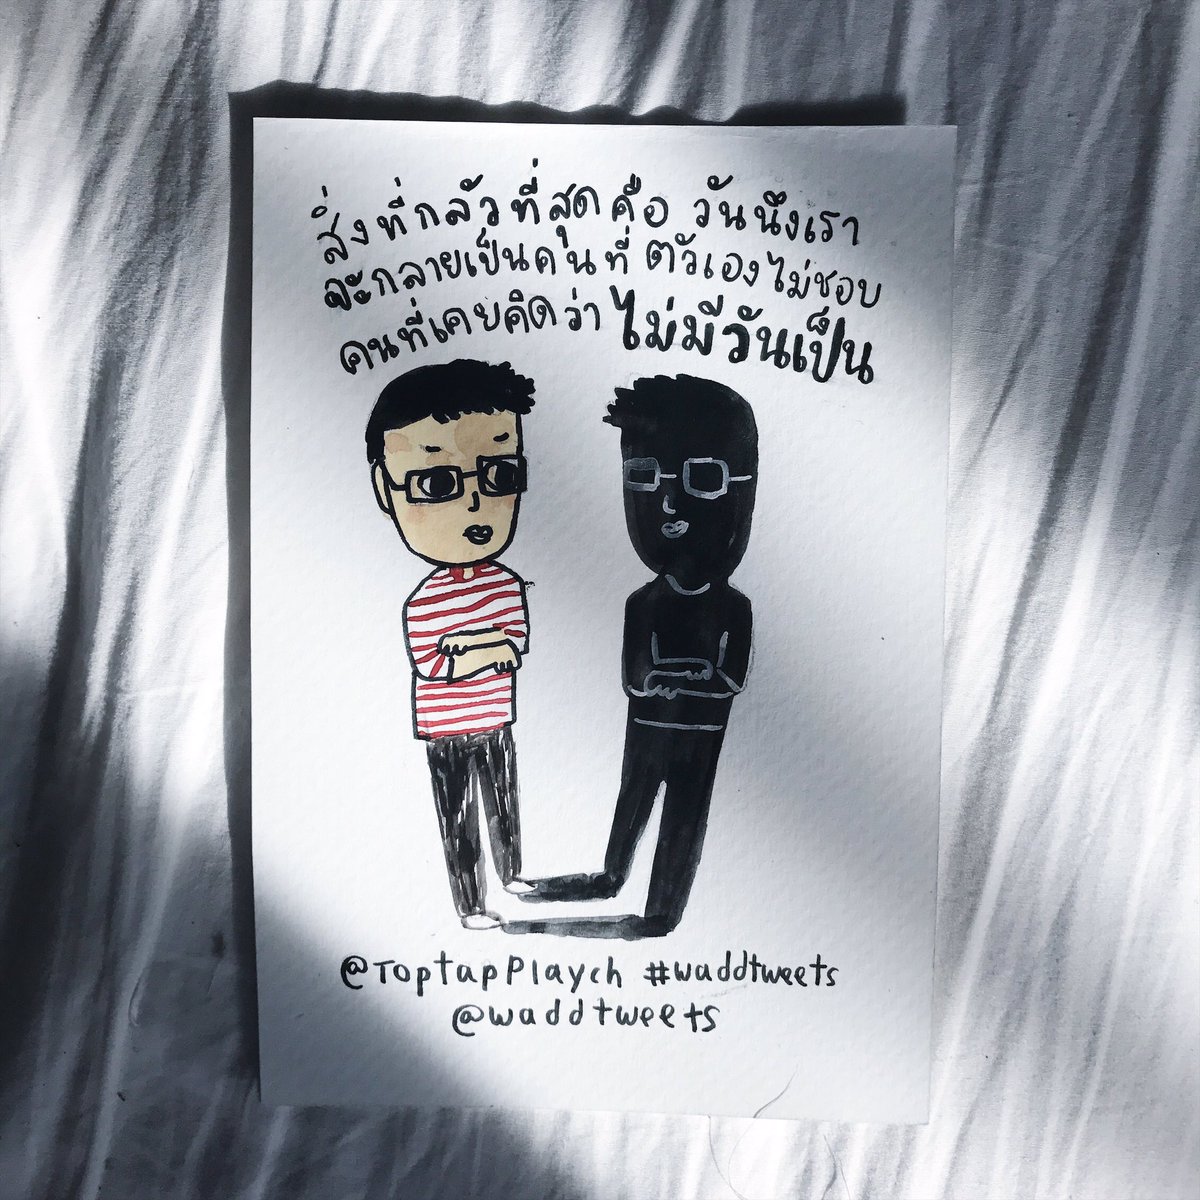 สิ่งที่กลัวที่สุดคือ วันนึงเรา
จะกลายเป็นคนที่ ตัวเองไม่ชอบ
คนที่เคยคิดว่า ไม่มีวันเป็น
@ToptapPlaych #waddtweets
@waddtweets